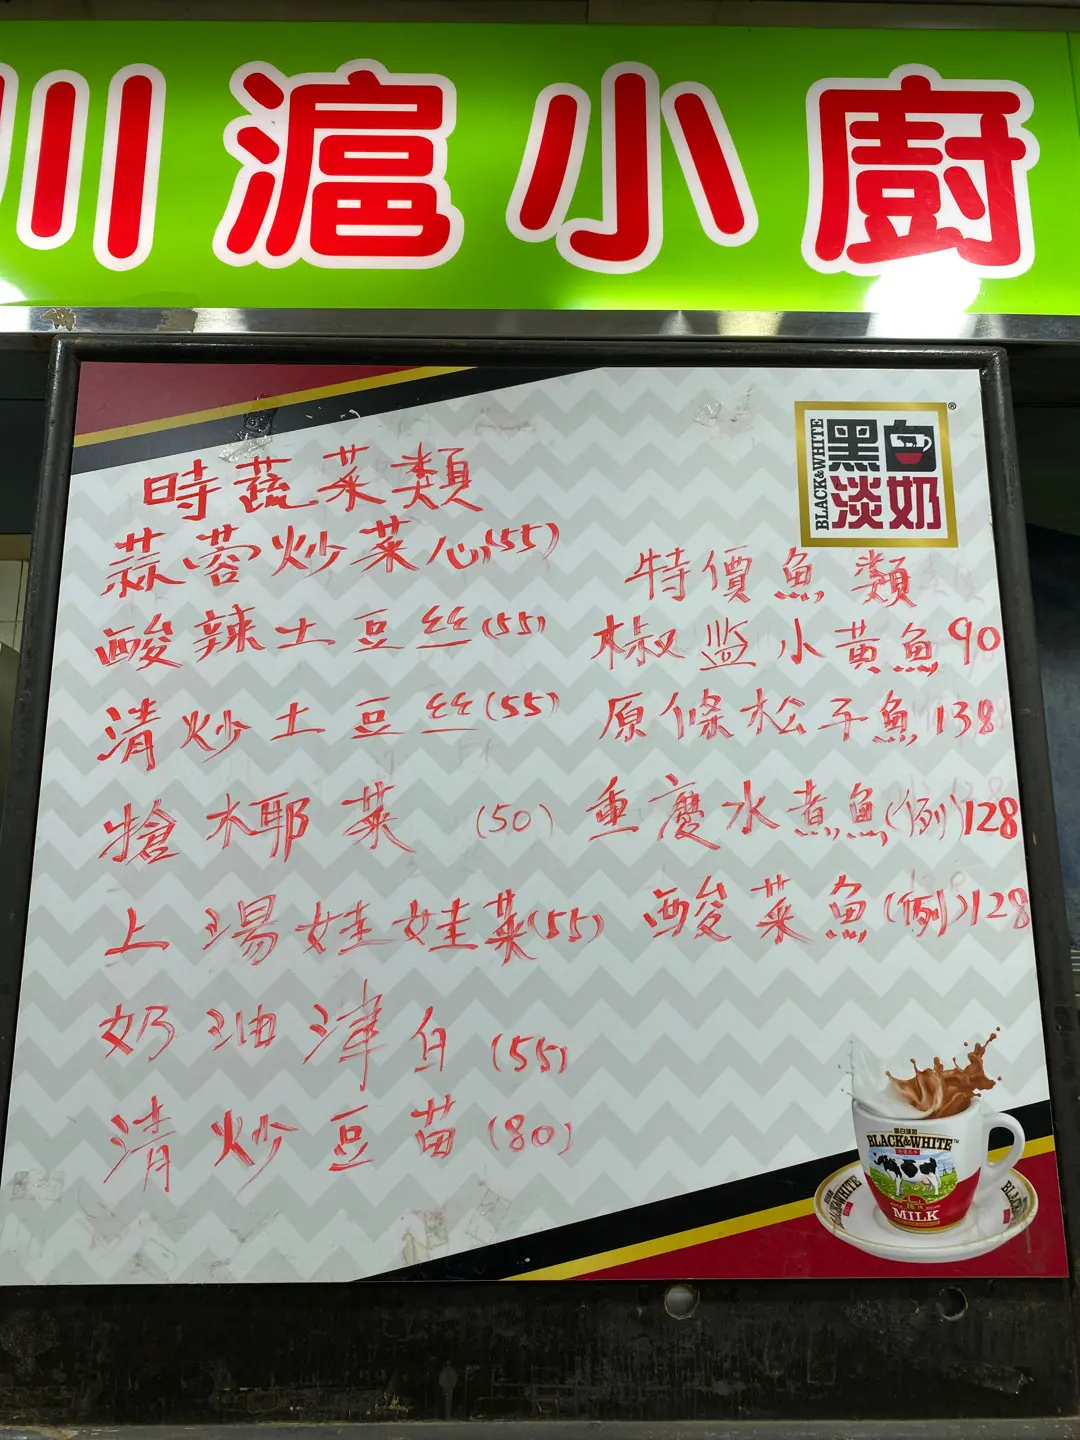 川滬小廚
BLACK&WHITE
黑白
淡奶
時蔬菜類
蒜蓉炒菜心(55)
酸辣土豆丝(55)
清炒土豆丝(55)
搶椰菜 (50)
上湯娃娃菜(55)
奶油津白(55)
清炒豆苗(80)
特價魚類
椒监小黄魚90
原條松子魚138
重慶水煮魚(例)128
酸菜魚(例)128
BLACK&WHITE
MILK
BLACK&WHITE